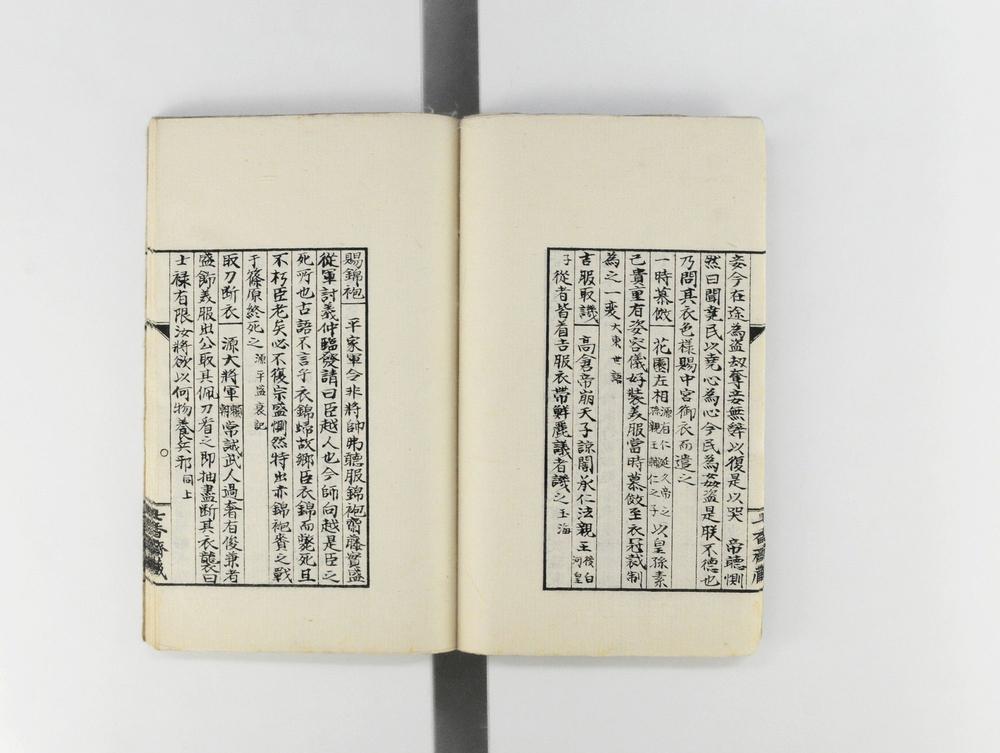 妾今在途為盗刼奪妾無辭以復是以哭 帝聽惻
然曰聞堯民以堯心為心今民為姦盗是朕不德也
乃問其衣色様賜中宮御衣而遣之
一時慕倣 花園左相源有仁延久帝之孫親王輔仁之子以皇孫素
己貴重有姿容儀好裝美服當時慕倣至衣冠裁制
為之一変大東世語
吉服取譏 高倉帝崩天子諒闇承仁法親王後白河皇
子從者皆着吉服衣帶鮮麗議者譏之玉海
賜錦袍 平家軍令非将帥弗聽服錦袍齋藤實盛
從軍討義仲臨發請曰臣越人也今師向越是臣之
死所也古語不言乎衣錦歸故郷臣衣錦而斃死且
不朽臣老矣必不復宗盛惻然特出赤錦袍賚之戰
于篠原終死之源平盛衰記
取刀断衣 源大将軍頼朝常誡武人過奢有俊兼者
盛飾美服出公取其佩刀看之即抽盡断其衣襲曰
士禄有限汝將欲以何物養兵邪同上